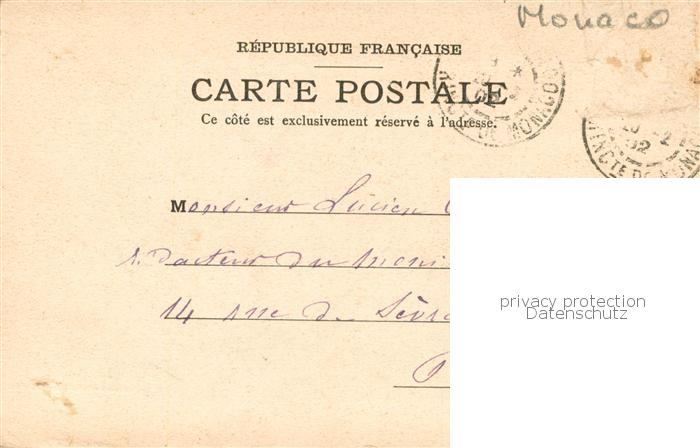 Monaco
RÉPUBLIQUE FRANÇAISE
CARTE POSTALE
Ce côté est exclusivement réservé à l'adresse.
Monsieur Lucien
rédacteur du Moni
14 rue de Sèvre
privacy protection
Datenschutz